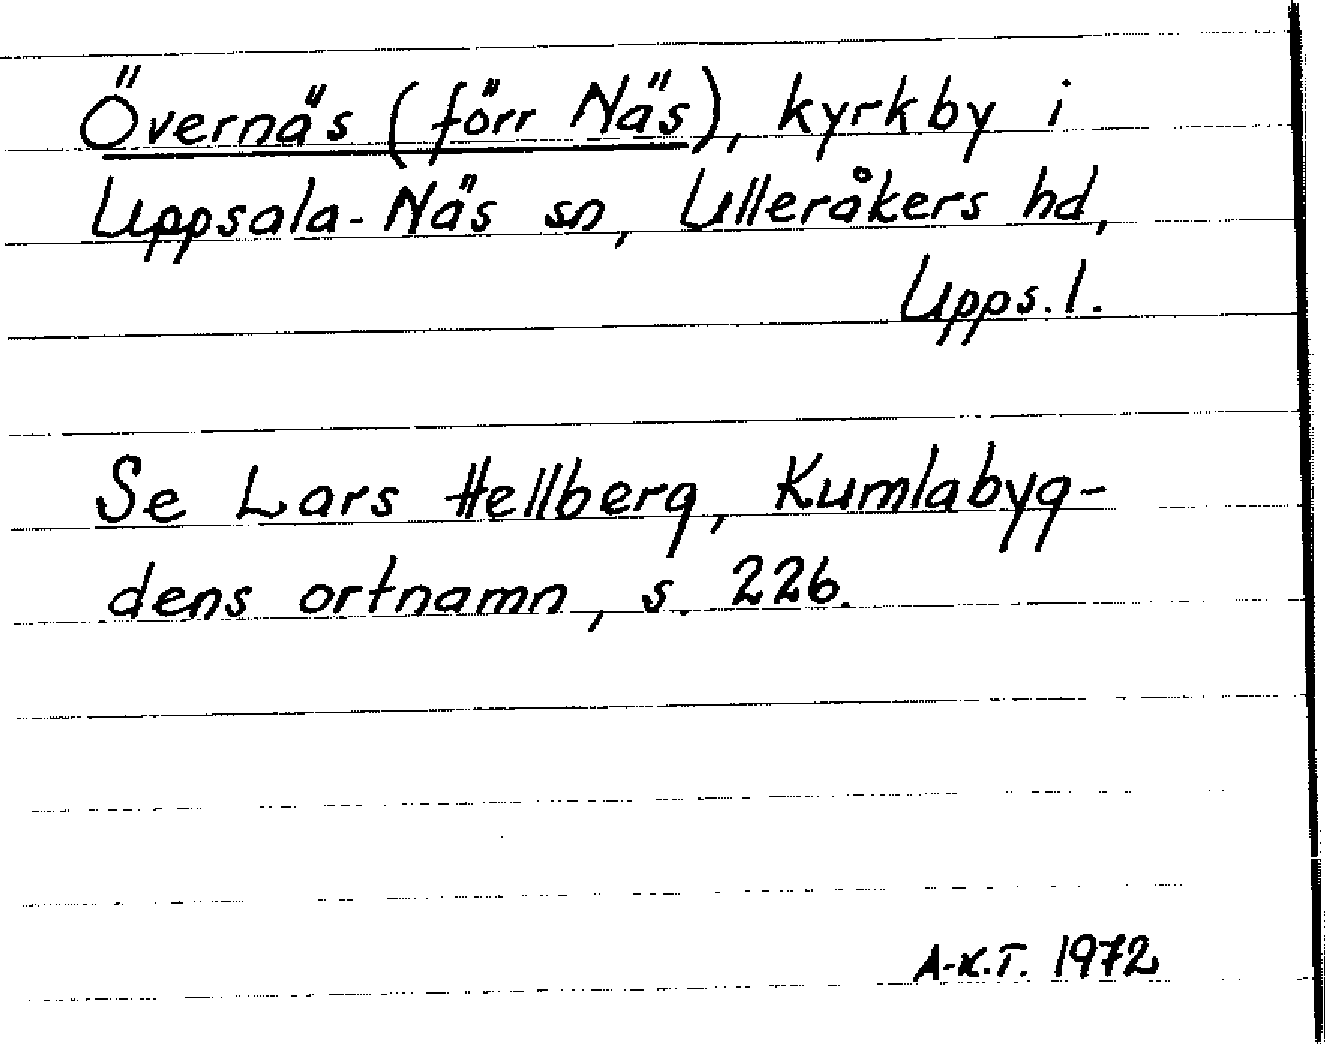 Övernäs (förr Näs), kyrkby i
Uppsala-Näs sn, Ulleråkers hd,
Upps. l.
Se Lars Hellberg, Kumlabyg-
dens ortnamn, s. 226.
A-K.T. 1972